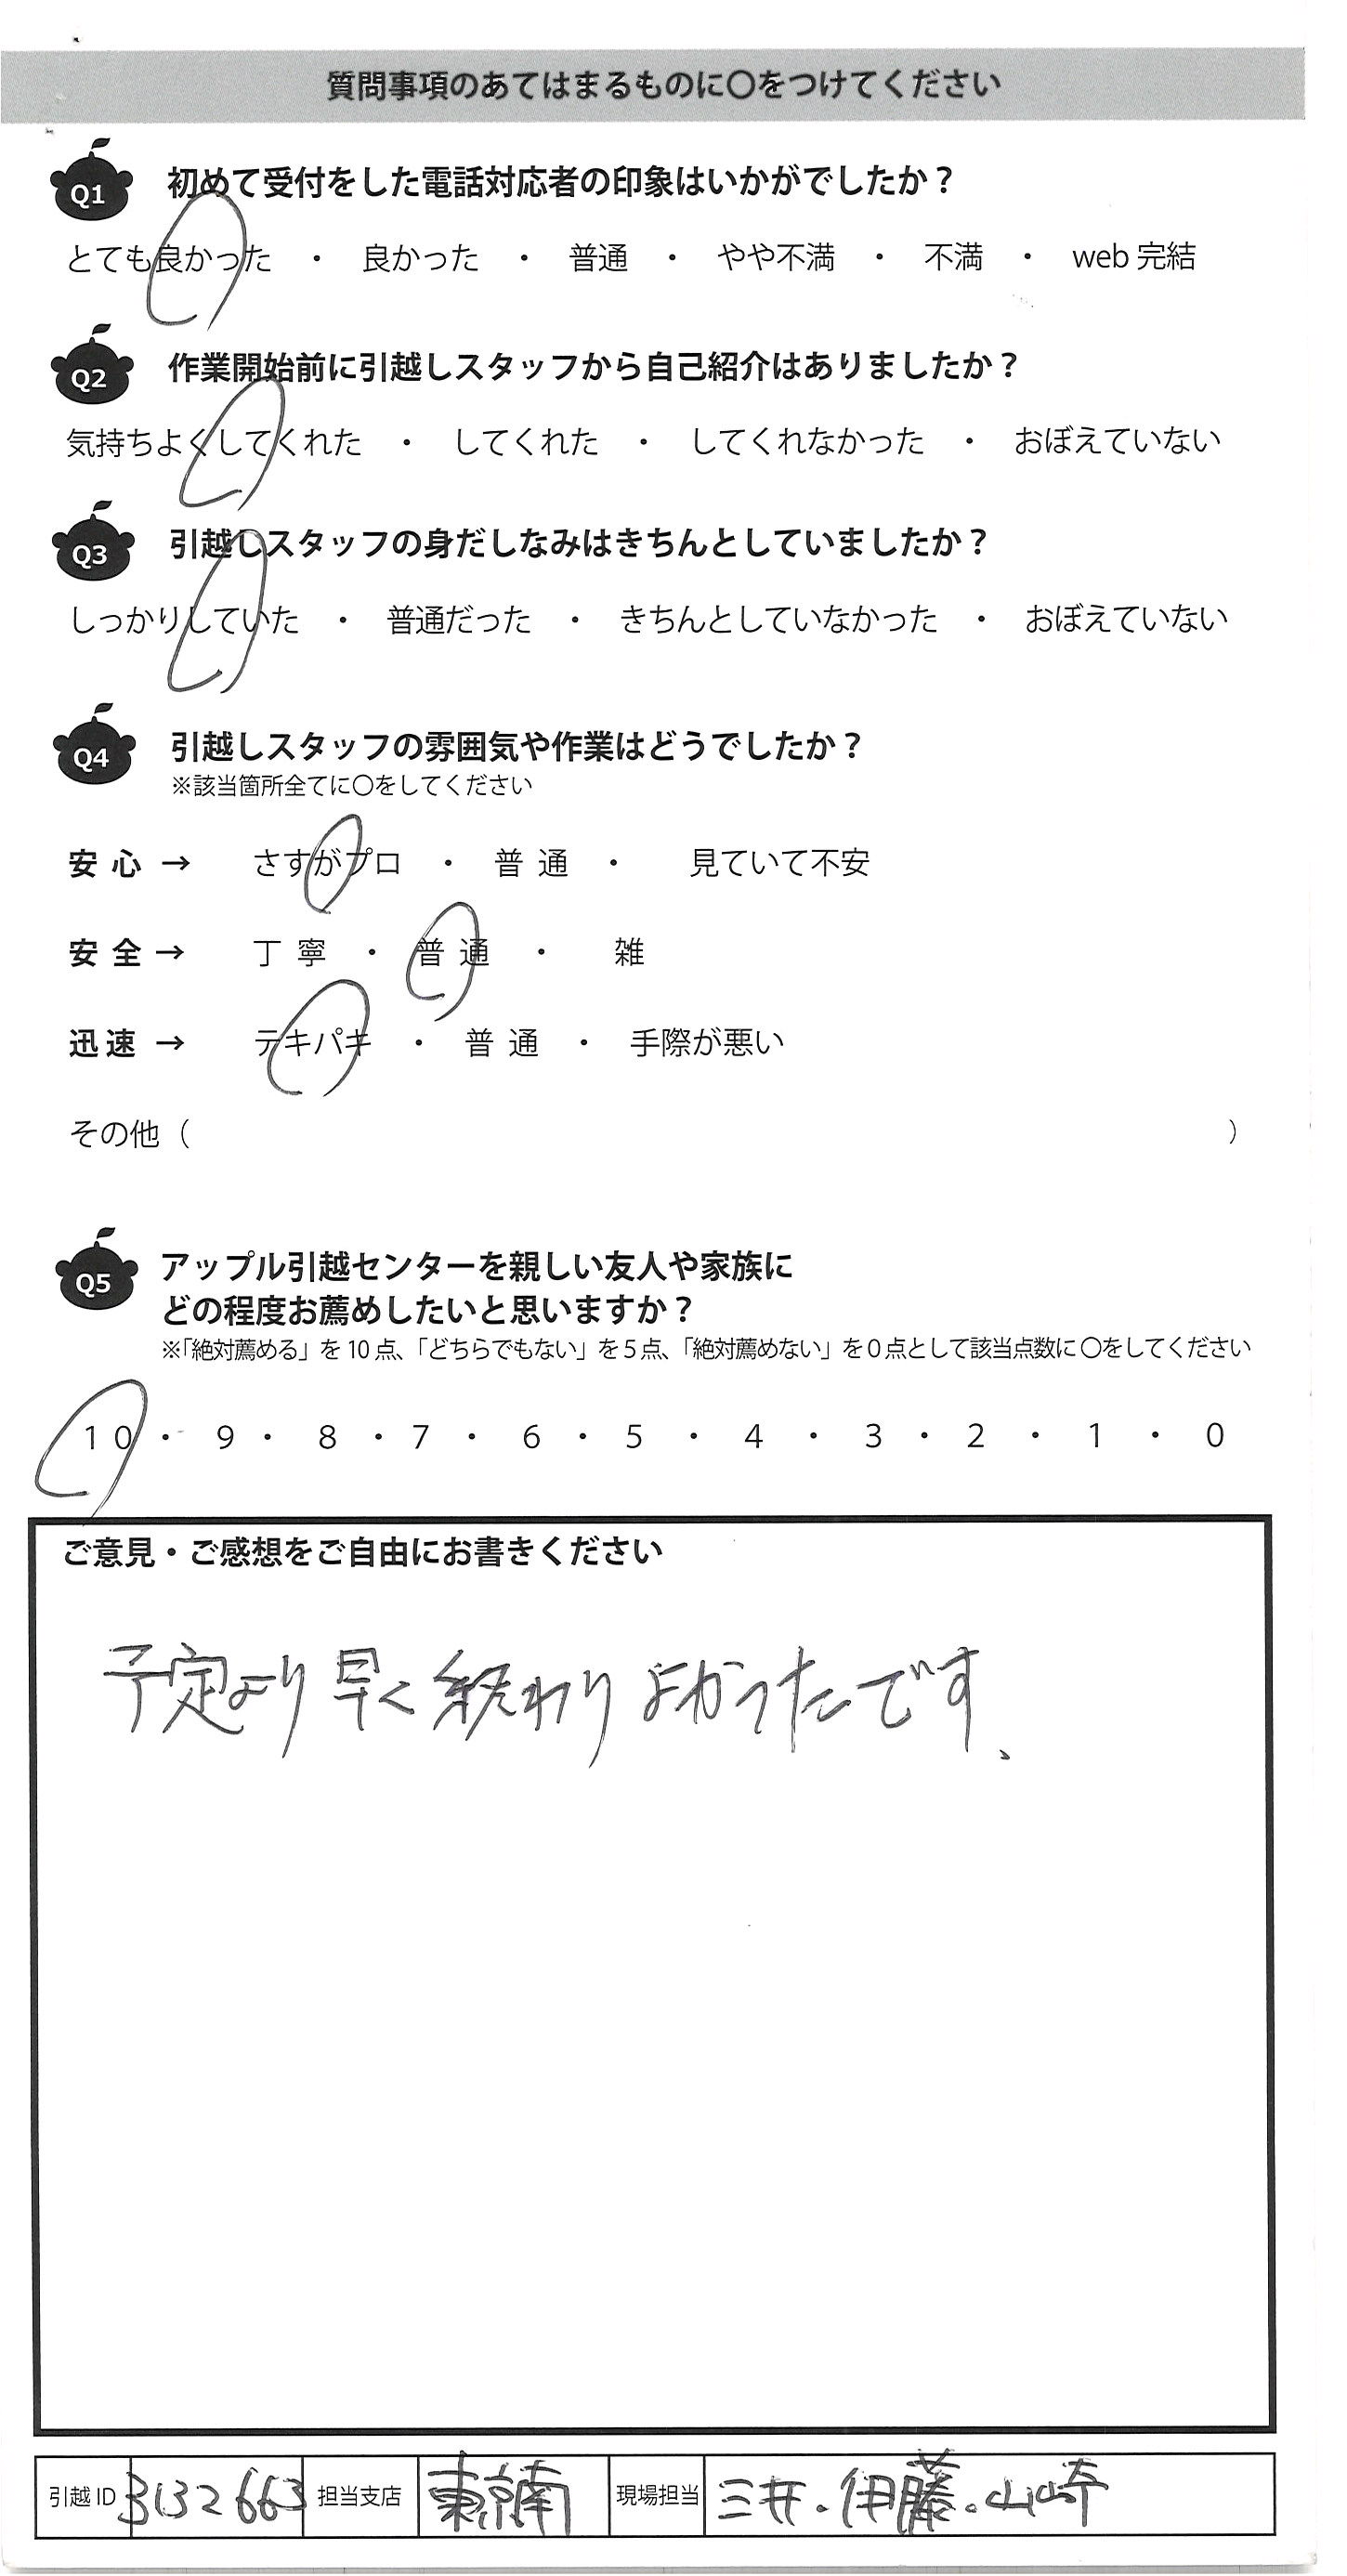 質問事項のあてはまるものに〇をつけてください
Q1 初めて受付をした電話対応者の印象はいかがでしたか？
とても良かった ・ 良かった ・ 普通 ・ やや不満 ・ 不満 ・ web 完結
Q2 作業開始前に引越しスタッフから自己紹介はありましたか？
気持ちよくしてくれた ・ してくれた ・ してくれなかった ・ おぼえていない
Q3 引越しスタッフの身だしなみはきちんとしていましたか？
しっかりしていた ・ 普通だった ・ きちんとしていなかった ・ おぼえていない
Q4 引越しスタッフの雰囲気や作業はどうでしたか？
※該当箇所全てに〇をしてください
安 心 → さすがプロ ・ 普 通 ・ 見ていて不安
安 全 → 丁 寧 ・ 普 通 ・ 雑
迅 速 → テキパキ ・ 普 通 ・ 手際が悪い
その他（ ）
Q5 アップル引越センターを親しい友人や家族に
どの程度お薦めしたいと思いますか？
※「絶対薦める」を 10 点、「どちらでもない」を 5 点、「絶対薦めない」を 0 点として該当点数に 〇をしてください
10 ・ 9 ・ 8 ・ 7 ・ 6 ・ 5 ・ 4 ・ 3 ・ 2 ・ 1 ・ 0
ご意見・ご感想をご自由にお書きください
予定より早く終わりよかったです、
引越 ID 3132663 担当支店 東京南 現場担当 三井・伊藤・山崎